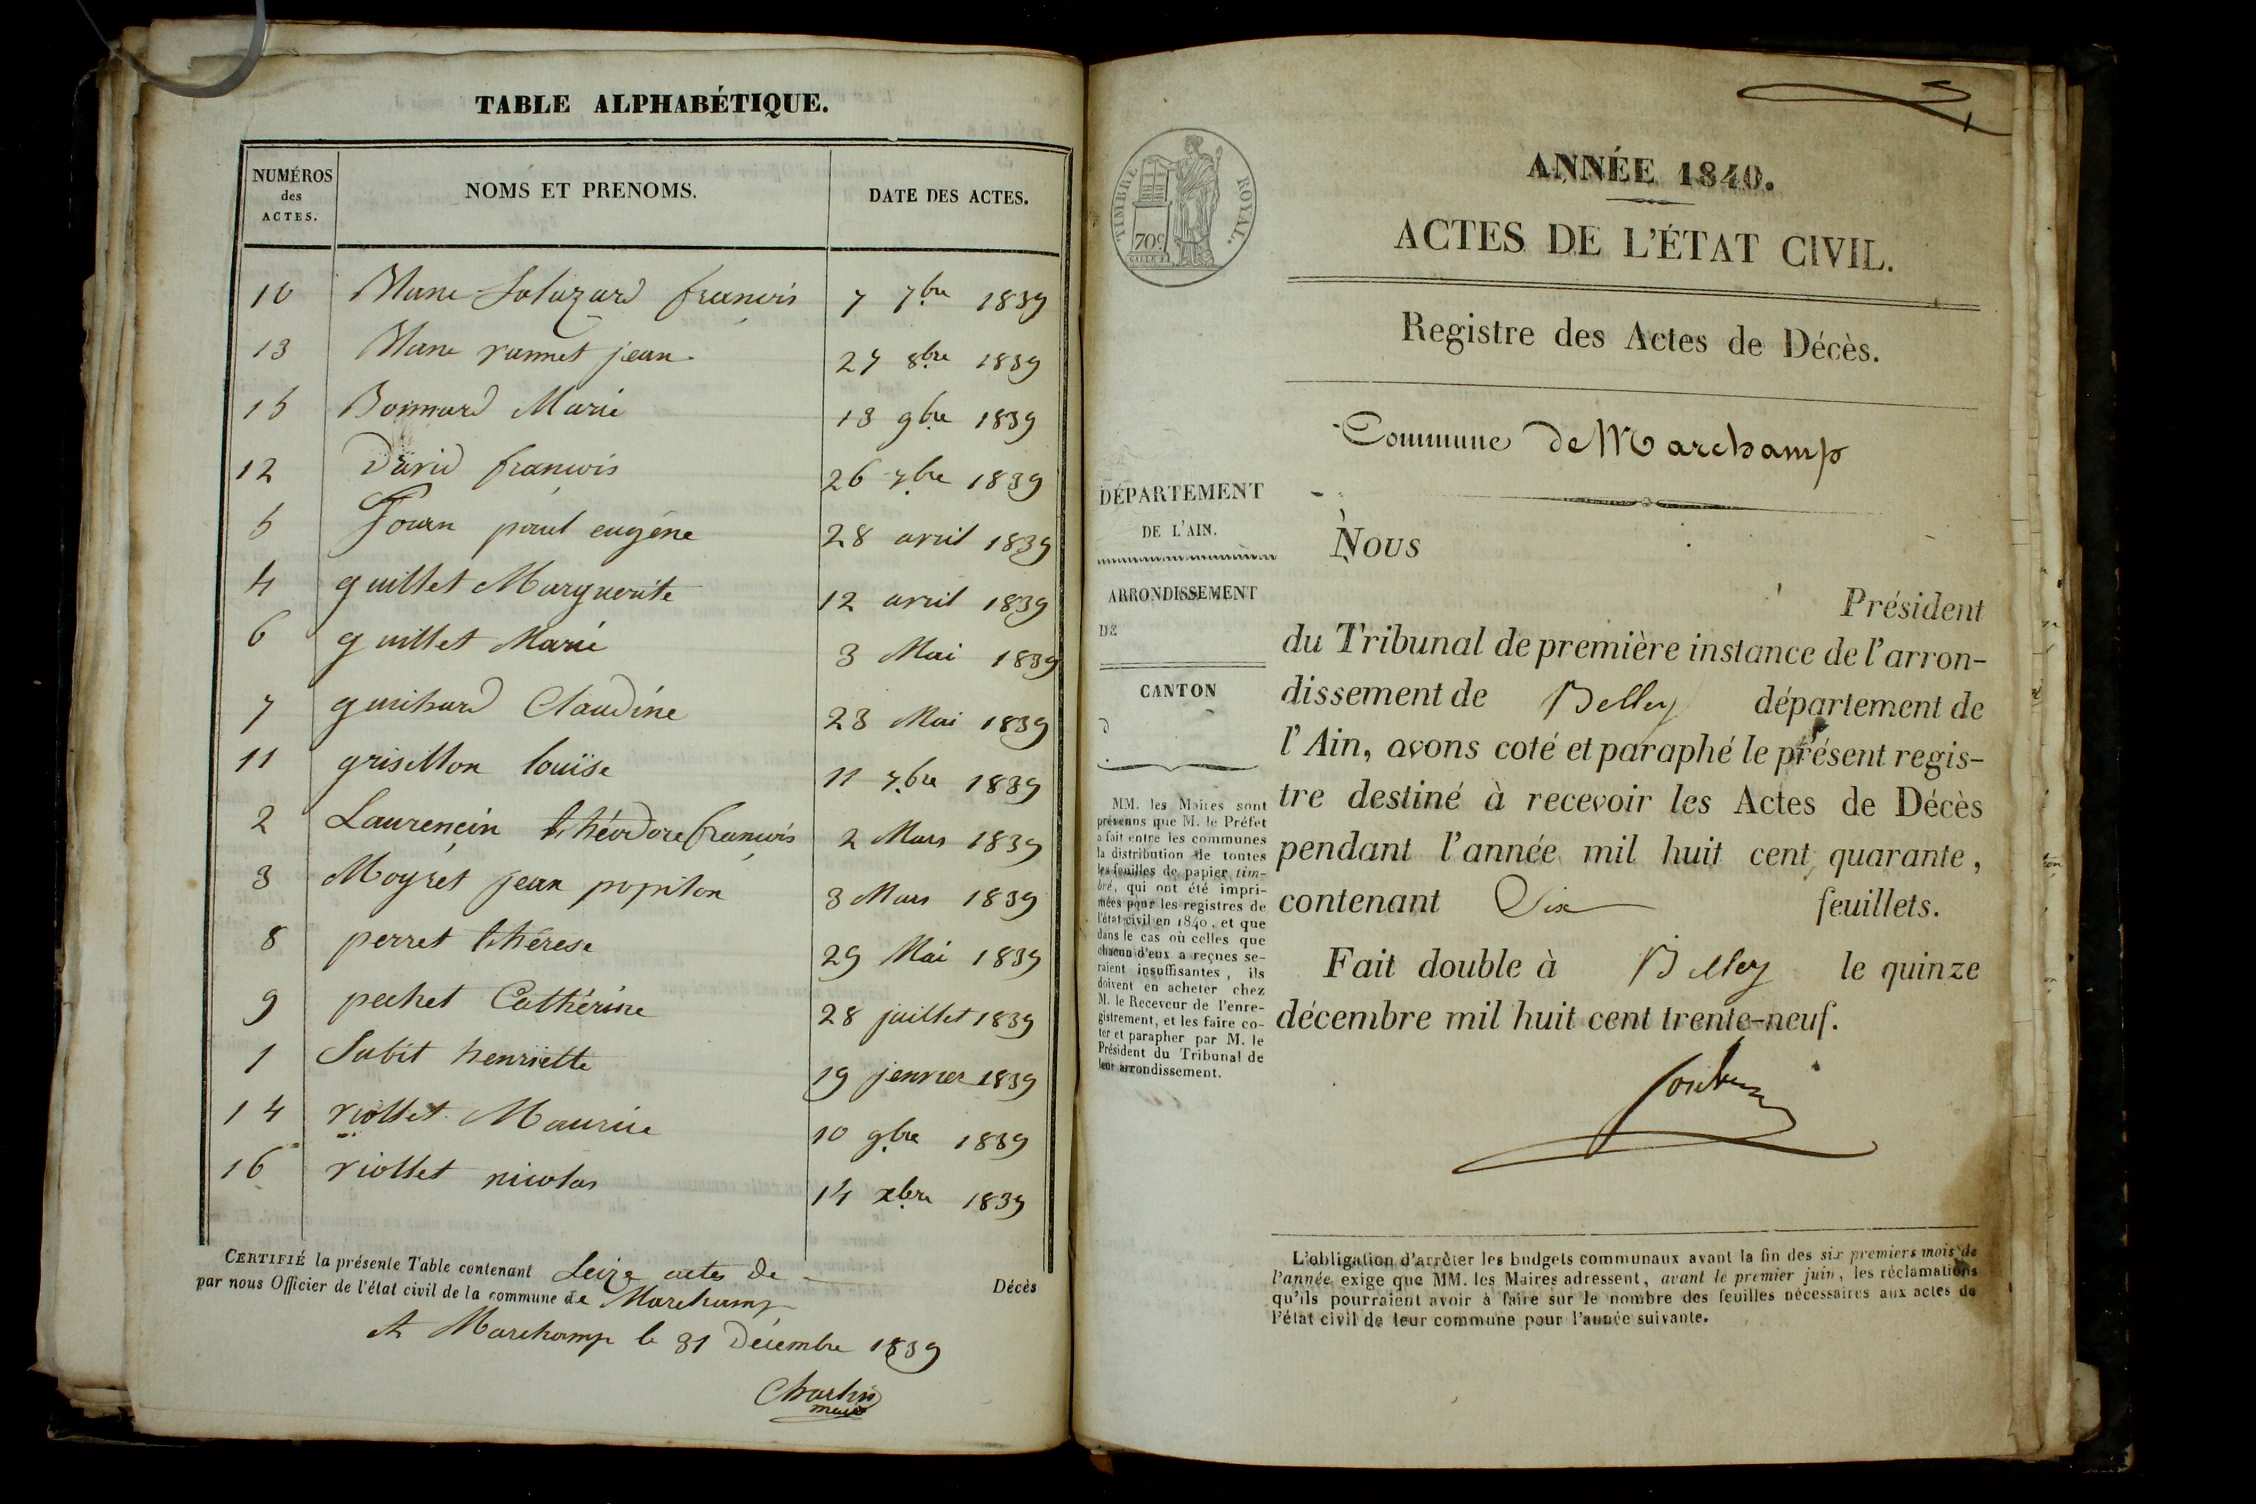 TABLE ALPHABÉTIQUE.
NUMÉROS des ACTES. NOMS ET PRENOMS. DATE DES ACTES.
10 Blanc Salazard françois 7 7bre 1839
13 Blanc rannet jean 27 8bre 1839
15 Bonnard Marie 13 9bre 1839
12 David françois 26 7bre 1839
5 Fourn paul eugéne 28 avril 1839
4 guillet Marguerite 12 avril 1839
6 guillet Marie 3 Mai 1839
7 guichard Claudine 23 Mai 1839
11 grisillon louïse 11 7bre 1839
2 Laurencin théodore françois 2 Mars 1839
3 Moyret jean popiton 3 Mars 1839
8 perret thérese 29 Mai 1839
9 pechet Cathérine 28 juillet 1839
1 Subit henriette 19 jenvier 1839
14 riollet Maurice 10 9bre 1839
16 riollet nicolas 14 xbre 1839
CERTIFIÉ la présente Table contenant Seize actes de Décès
par nous Officier de l'état civil de la commune de Marchamp
A Marchamp le 31 Décembre 1839
Charlin
maire
TIMBRE ROYAL.
70c
ANNÉE 1840.
ACTES DE L'ÉTAT CIVIL.
Registre des Actes de Décès.
Commune de Marchamp
DÉPARTEMENT
DE L'AIN.
ARRONDISSEMENT
DE
CANTON
d
MM. les Maires sont
prévenus que M. le Préfet
a fait entre les communes
la distribution de toutes
les feuilles de papier tim-
bré, qui ont été impri-
mées pour les registres de
l'état civil en 1840, et que
dans le cas où celles que
chacun d'eux a reçues se-
raient insuffisantes, ils
doivent en acheter chez
M. le Receveur de l'enre-
gistrement, et les faire co-
ter et parapher par M. le
Président du Tribunal de
leur arrondissement.
Nous
Président
du Tribunal de première instance de l'arron-
dissement de Belley département de
l'Ain, avons coté et paraphé le présent regis-
tre destiné à recevoir les Actes de Décès
pendant l'année mil huit cent quarante,
contenant Six feuillets.
Fait double à Belley le quinze
décembre mil huit cent trente-neuf.
L'obligation d'arrêter les budgets communaux avant la fin des six premiers mois de
l'année exige que MM. les Maires adressent, avant le premier juin, les réclamations
qu'ils pourraient avoir à faire sur le nombre des feuilles nécessaires aux actes de
l'état civil de leur commune pour l'année suivante.